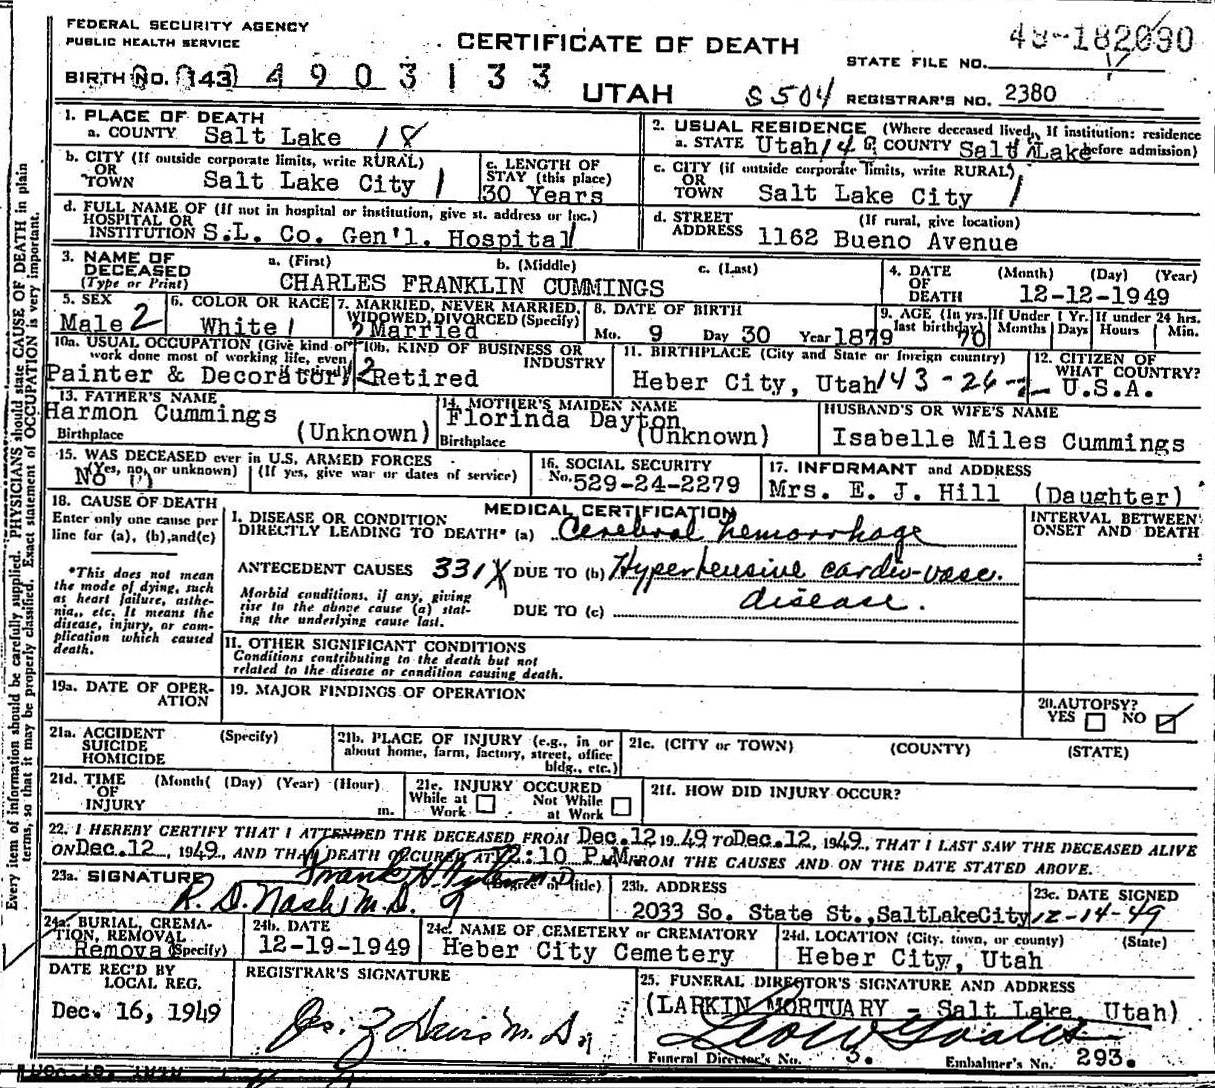 FEDERAL SECURITY AGENCY
PUBLIC HEALTH SERVICE
CERTIFICATE OF DEATH
48-182090
STATE FILE NO.
BIRTH NO. 143 4 9 0 3 1 3 3
UTAH
S504
REGISTRAR'S NO. 2380
1. PLACE OF DEATH
a. COUNTY Salt Lake 18
2. USUAL RESIDENCE (Where deceased lived. If institution: residence before admission)
a. STATE Utah 14 COUNTY Salt Lake
b. CITY (If outside corporate limits, write RURAL)
OR TOWN Salt Lake City 1
c. LENGTH OF STAY (this place)
30 Years
c. CITY (if outside corporate limits, write RURAL)
OR TOWN Salt Lake City 1
d. FULL NAME OF (If not in hospital or institution, give st. address or loc.)
HOSPITAL OR INSTITUTION S.L. Co. Gen'l. Hospital
d. STREET ADDRESS (If rural, give location)
1162 Bueno Avenue
3. NAME OF DECEASED (Type or Print)
a. (First) b. (Middle) c. (Last)
CHARLES FRANKLIN CUMMINGS
4. DATE OF DEATH (Month) (Day) (Year)
12-12-1949
5. SEX
Male 2
6. COLOR OR RACE
White 1
7. MARRIED, NEVER MARRIED, WIDOWED, DIVORCED (Specify)
2 Married
8. DATE OF BIRTH
Mo. 9 Day 30 Year 1879
9. AGE (In yrs. last birthday) 70
If Under 1 Yr. Months Days
If under 24 hrs. Hours Min.
10a. USUAL OCCUPATION (Give kind of work done most of working life, even if retired)
Painter & Decorator
10b. KIND OF BUSINESS OR INDUSTRY
2 Retired
11. BIRTHPLACE (City and State or foreign country)
Heber City, Utah 143-26-2
12. CITIZEN OF WHAT COUNTRY?
U.S.A.
13. FATHER'S NAME
Harmon Cummings
Birthplace (Unknown)
14. MOTHER'S MAIDEN NAME
Florinda Dayton
Birthplace (Unknown)
HUSBAND'S OR WIFE'S NAME
Isabelle Miles Cummings
15. WAS DECEASED ever in U.S. ARMED FORCES
(Yes, no, or unknown) (If yes, give war or dates of service)
No
16. SOCIAL SECURITY
No. 529-24-2279
17. INFORMANT and ADDRESS
Mrs. E. J. Hill (Daughter)
18. CAUSE OF DEATH
Enter only one cause per line for (a), (b), and (c)
*This does not mean the mode of dying, such as heart failure, asthenia, etc. It means the disease, injury, or complication which caused death.
MEDICAL CERTIFICATION
I. DISEASE OR CONDITION DIRECTLY LEADING TO DEATH* (a) Cerebral hemorrhage
ANTECEDENT CAUSES 331X DUE TO (b) Hypertensive cardio-vasc. disease.
Morbid conditions, if any, giving rise to the above cause (a) stating the underlying cause last.
DUE TO (c)
INTERVAL BETWEEN ONSET AND DEATH
II. OTHER SIGNIFICANT CONDITIONS
Conditions contributing to the death but not related to the disease or condition causing death.
19a. DATE OF OPERATION
19. MAJOR FINDINGS OF OPERATION
20. AUTOPSY?
YES NO
21a. ACCIDENT SUICIDE HOMICIDE (Specify)
21b. PLACE OF INJURY (e.g., in or about home, farm, factory, street, office bldg., etc.)
21c. (CITY or TOWN) (COUNTY) (STATE)
21d. TIME OF INJURY (Month) (Day) (Year) (Hour) m.
21e. INJURY OCCURED
While at Work Not While at Work
21f. HOW DID INJURY OCCUR?
22. I HEREBY CERTIFY THAT I ATTENDED THE DECEASED FROM Dec. 12 1949 TO Dec. 12, 1949, THAT I LAST SAW THE DECEASED ALIVE
ON Dec. 12, 1949, AND THAT DEATH OCCURED AT 12:10 P.M. FROM THE CAUSES AND ON THE DATE STATED ABOVE.
23a. SIGNATURE (Degree or title)
R. D. Nash, M.D.
23b. ADDRESS
2033 So. State St., SaltLakeCity
23c. DATE SIGNED
12-14-49
24a. BURIAL, CREMATION, REMOVAL (Specify)
Removal
24b. DATE
12-19-1949
24c. NAME OF CEMETERY or CREMATORY
Heber City Cemetery
24d. LOCATION (City, town, or county) (State)
Heber City, Utah
DATE REC'D BY LOCAL REG.
Dec. 16, 1949
REGISTRAR'S SIGNATURE
25. FUNERAL DIRECTOR'S SIGNATURE AND ADDRESS
(LARKIN MORTUARY - Salt Lake, Utah)
Funeral Director's No. 3. Embalmer's No. 293.
Every item of information should be carefully supplied. PHYSICIANS should state CAUSE OF DEATH in plain
terms, so that it may be properly classified. Exact statement of OCCUPATION is very important.